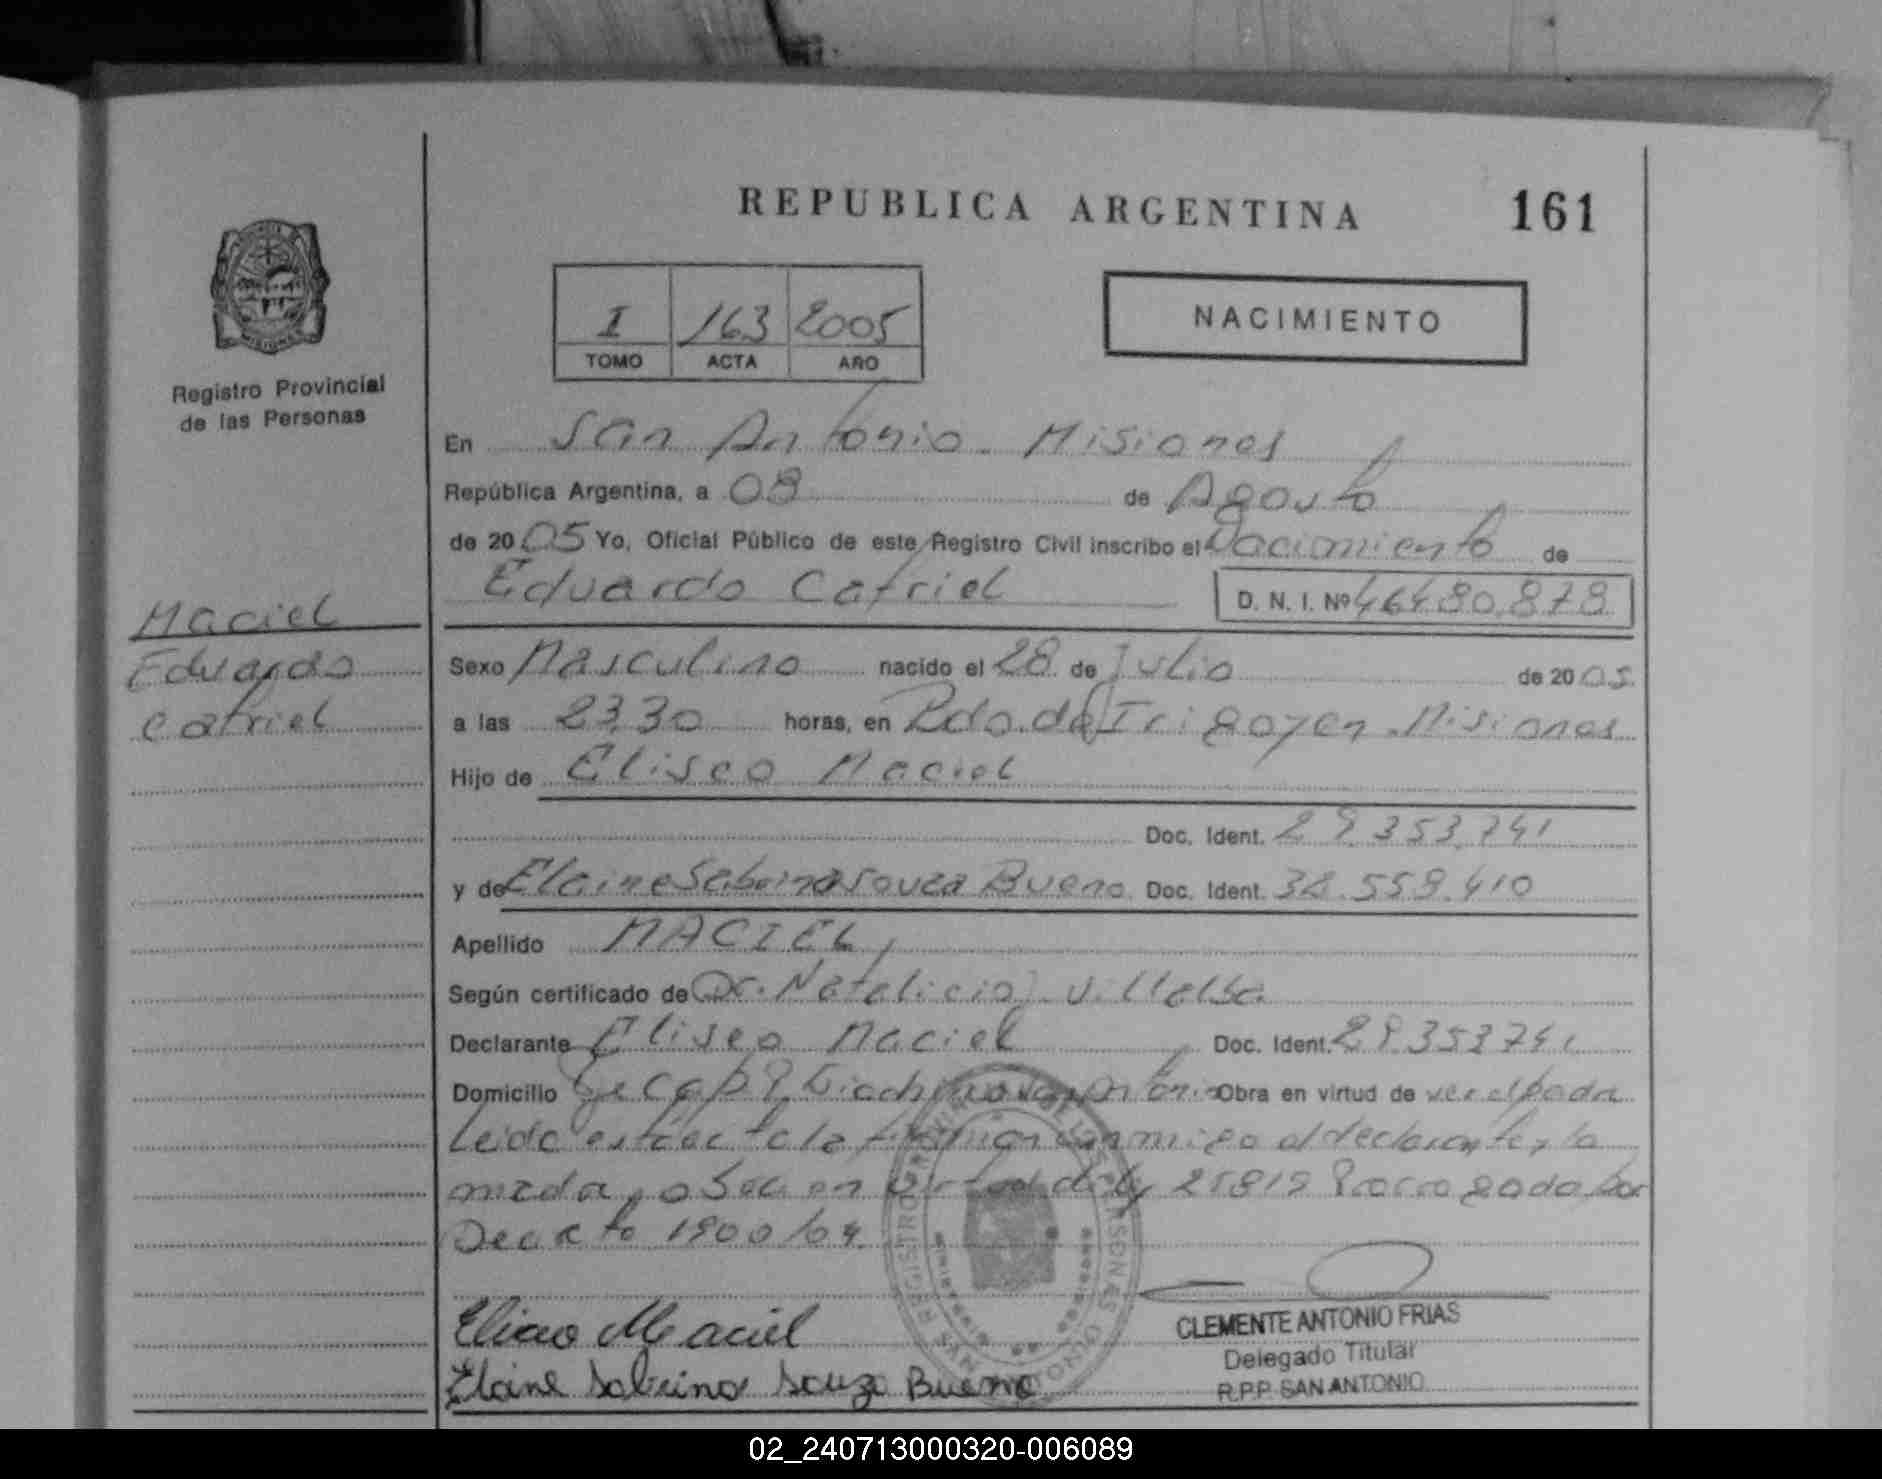 REPUBLICA ARGENTINA 161
I 163 2005
TOMO ACTA AÑO
NACIMIENTO
Registro Provincial
de las Personas
En San Antonio - Misiones
República Argentina, a 08 de Agosto
de 2005 Yo, Oficial Público de este Registro Civil inscribo el Naciamiento de
Eduardo Catriel D. N. I. Nº 46480.878
Maciel
Eduardo
Catriel
Sexo Masculino nacido el 28 de Julio de 2005
a las 23,30 horas, en Bdo. de Irigoyen - Misiones
Hijo de Eliseo Maciel
Doc. Ident. 29.353.741
y de Elaine Sabrina Souza Bueno Doc. Ident. 38.559.410
Apellido MACIEL
Según certificado de Dr. Natalicio J. Villalba
Declarante Eliseo Maciel Doc. Ident. 29.353741
Domicilio San Antonio Obra en virtud de
Leida esta acta la firman conmigo el declarante y la
madre, obra en virtud de ley 25819 Prorrogado por
Decreto 1900/04
Eliseo Maciel
Elaine Sabrina Souza Bueno
CLEMENTE ANTONIO FRIAS
Delegado Titular
R.P.P. SAN ANTONIO
02_240713000320-006089